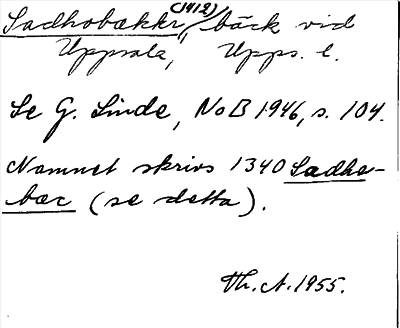 Sadhobækkr (1412), bäck vid
Uppsala, Upps. l.
Se G. Linde, NoB 1946, s. 104.
Namnet skrivs 1340 Sadho-
bæc (se detta).
Th. A. 1955.